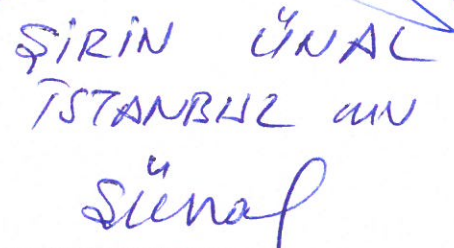 ŞİRİN ÜNAL
İSTANBUL MV
Şünal